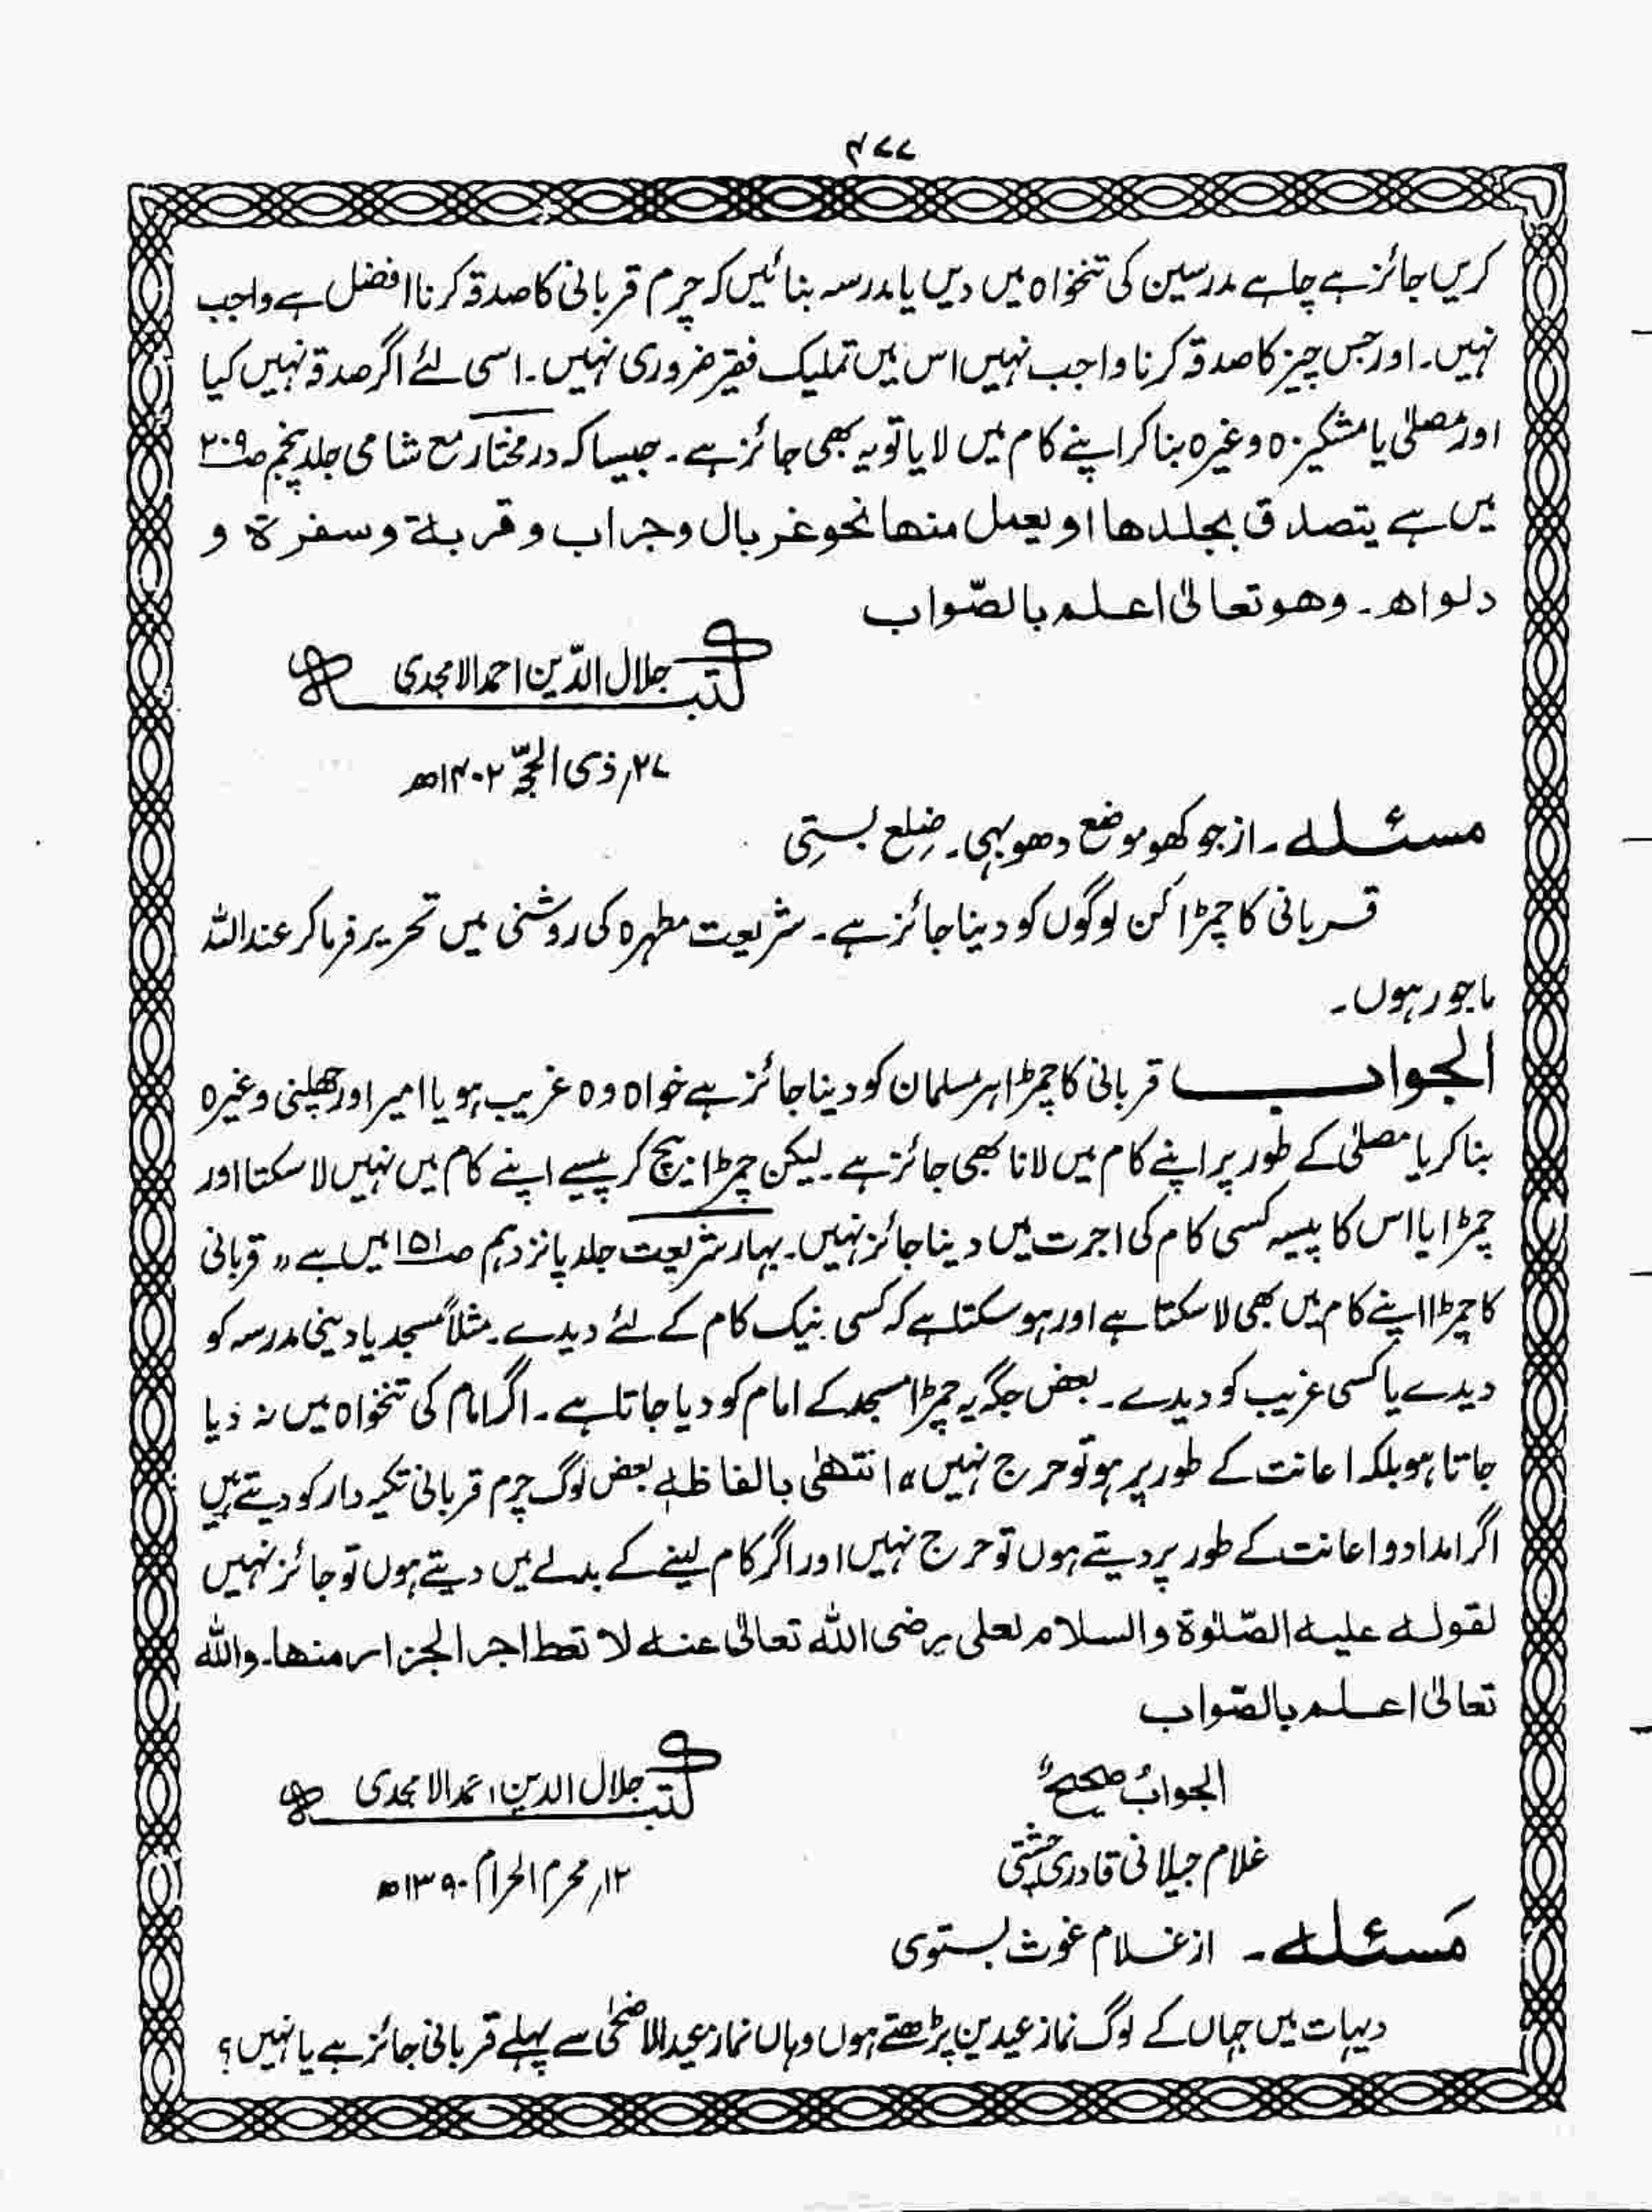 ۴۷۷
کریں جائز ہے چاہے مدرسین کی تنخواہ میں دیں یا مدرسہ بنائیں کہ چرم قربانی کا صدقہ کرنا افضل ہے واجب
نہیں۔ اور جس چیز کا صدقہ کرنا واجب نہیں اس میں تملیک فقیر ضروری نہیں۔ اسی لئے اگر صدقہ نہیں کیا
اور مصلیٰ یا مشکیزہ وغیرہ بنا کر اپنے کام میں لایا تو یہ بھی جائز ہے۔ جیسا کہ در مختار مع شامی جلد پنجم صـ۲۰۹
میں ہے یتصدق بجلدھا او یعمل منھا نحو غربال وجراب و قربۃ وسفرۃ و
دلو اھ۔ وھو تعالیٰ اعلم بالصّواب
کتبہ جلال الدّین احمد الامجدی
۲۷؍ ذی الحجّہ ۱۴۰۲ھ
مسئلہ۔ از جوکھو موضع دھوبہی۔ ضِلع بستِی
قربانی کا چمڑا کن لوگوں کو دینا جائز ہے۔ شریعت مطہرہ کی روشنی میں تحریر فرما کر عنداللہ
ماجور ہوں۔
الجواب قربانی کا چمڑا ہر مسلمان کو دینا جائز ہے خواہ وہ غریب ہو یا امیر اور چھلنی وغیرہ
بنا کر یا مصلیٰ کے طور پر اپنے کام میں لانا بھی جائز ہے۔ لیکن چمڑا بیچ کر پیسے اپنے کام میں نہیں لا سکتا اور
چمڑا یا اس کا پیسہ کسی کام کی اجرت میں دینا جائز نہیں۔ بہار شریعت جلد پانزدہم صـ۱۵۱ میں ہے ”قربانی
کا چمڑا اپنے کام میں بھی لا سکتا ہے اور ہو سکتا ہے کہ کسی نیک کام کے لئے دیدے۔ مثلاً مسجد یا دینی مدرسہ کو
دیدے یا کسی غریب کو دیدے۔ بعض جگہ یہ چمڑا مسجد کے امام کو دیا جاتا ہے۔ اگر امام کی تنخواہ میں نہ دیا
جاتا ہو بلکہ اعانت کے طور پر ہو تو حرج نہیں“ انتھیٰ بالفاظہٖ بعض لوگ چرم قربانی تکیہ دار کو دیتے ہیں
اگر امداد و اعانت کے طور پر دیتے ہوں تو حرج نہیں اور اگر کام لینے کے بدلے میں دیتے ہوں تو جائز نہیں
لقولہ علیہ الصّلوٰۃ والسلام لعلی رضی اللہ تعالیٰ عنہ لا تعط اجر الجزار منھا۔ واللہ
تعالیٰ اعلم بالصّواب
الجوابُ صحیحٌ
کتبہ جلال الدین احمد الامجدی
غلام جیلانی قادری چشتی
۱۲؍ محرم الحرام ۱۳۹۰ھ
مَسئلہ۔ از غلام غوث بستوی
دیہات میں جہاں کے لوگ نماز عیدین پڑھتے ہوں وہاں نماز عید الاضحیٰ سے پہلے قربانی جائز ہے یا نہیں؟